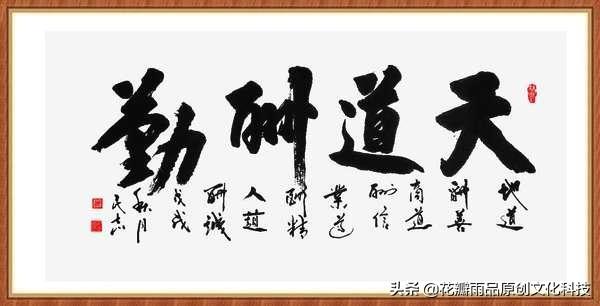 天道酬勤
地道
酬善
商道
酬信
業道
酬精
人道
酬誠
戊戌
秋月
头条 @花瓣雨品原创文化科技